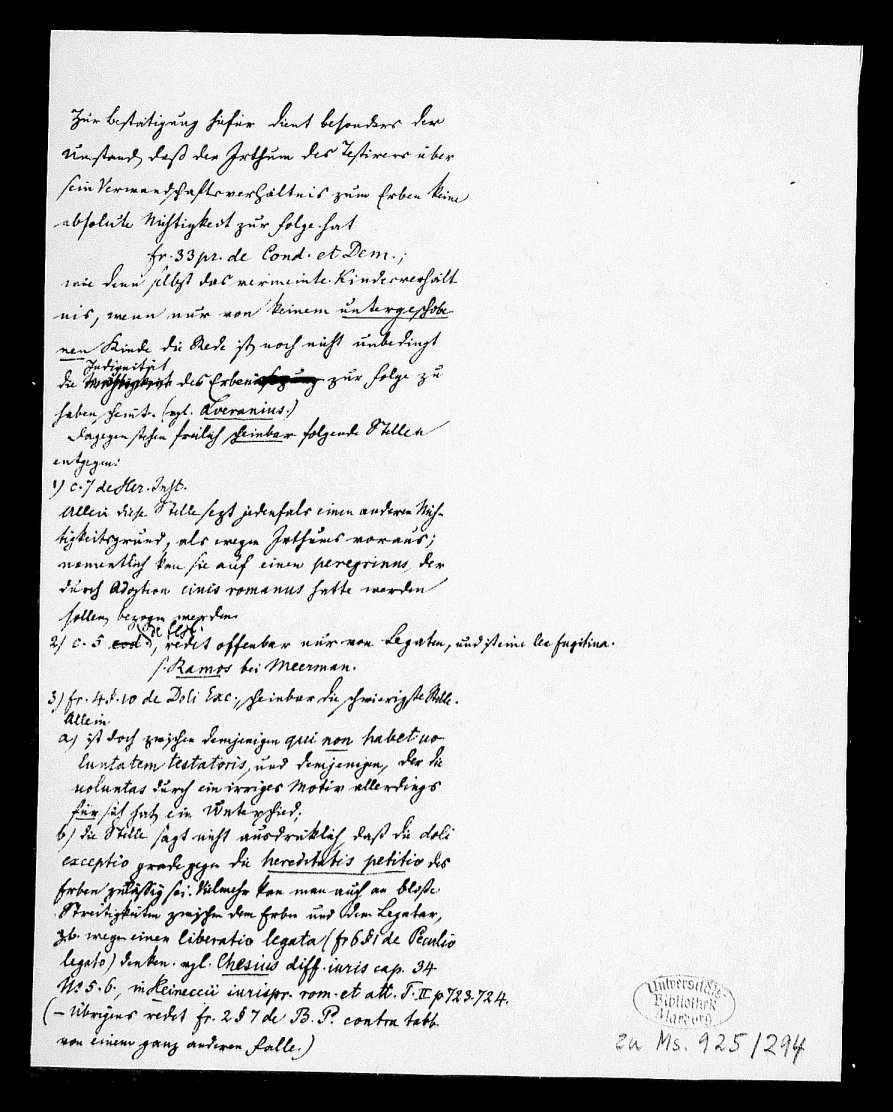 Zur Bestätigung hiefür dient besonders der
Umstand, daß der Irrthum des Testirers über
sein Verwandschaftsverhältnis zum Erben keine
absolute Nichtigkeit zur Folge hat
fr. 33 pr. de Cond. et Dem.;
wie denn selbst das vermeinte Kindesverhält
nis, wenn nur von keinem untergeschobe
nen Kinde die Rede ist, noch nicht unbedingt
Indignität
die Nichtigkeit des Erben zur Folge zu
haben scheint. (vgl. Averanius.)
Dagegen stehen freilich scheinbar folgende Stellen
entgegen:
1) c. 7 de Her. Inst.
Allein diese Stelle sezt jedenfals einen anderen Nich-
tigkeitsgrund, als wegen Irthums voraus;
namentlich kan sie auf einen peregrinus, der
durch Adoption civis romanus hatte werden
sollen, bezogen werden.
2) c. 5 eod., redet offenbar nur von Legaten, und ist eine lex fugitiva.
s. Ramos bei Meerman.
3) fr. 4 §. 10 de Doli Exc., scheinbar die schwierigste Stelle.
Allein
a) ist doch zwischen demjenigen qui non habet vo-
luntatem testatoris, und demjenigen, der die
voluntas durch ein irriges Motiv allerdings
für sich hat, ein Unterschied;
b) die Stelle sagt nicht ausdrüklich, daß die doli
exceptio grade gegen die hereditatis petitio des
Erben zulässig sei. Vielmehr kan man auch an bloße
Streitigkeiten zwischen dem Erben und dem Legatar,
zb. wegen einer liberatio legata (fr 6 §1 de Peculio
legato) denken. vgl. Chesius diff. iuris cap. 34
No 5. 6., in Heineccii iurispr. rom. et att. T. II p 723. 724.
(– Übrigens redet fr. 2 § 7 de B. P. contra tabb.
von einem ganz anderen Falle.)
Universitäts-
Bibliothek
Marburg
zu Ms. 925/294